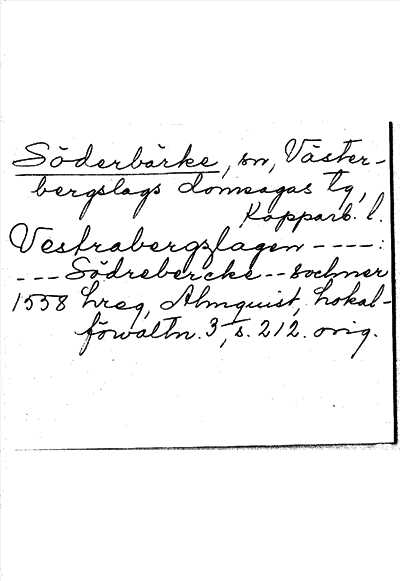 Söderbärke, sn, Väster-
bergslags domsagas tg,
Kopparb. l.
Vestrabergzlagen ----:
--- Södrebercke -- sochner
1558 hreg, Almquist, Lokal-
förvaltn. 3, s. 212. orig.